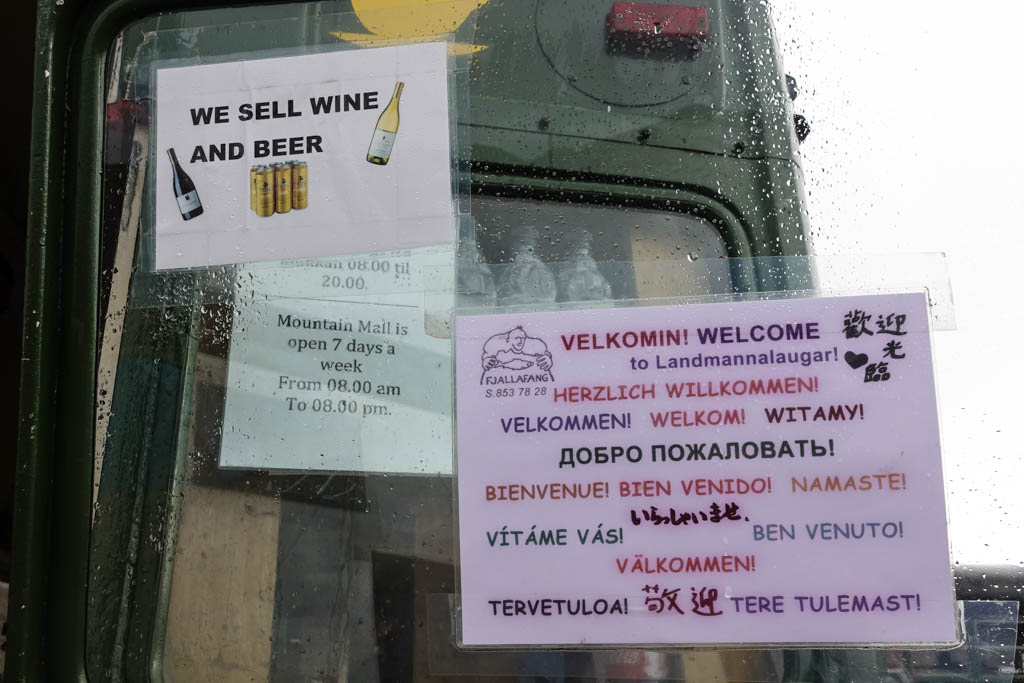 WE SELL WINE
AND BEER
08.00 til
20.00.
Mountain Mall is
open 7 days a
week
From 08.00 am
To 08.00 pm.
FJALLAFANG
S.853 78 28
VELKOMIN! WELCOME
to Landmannalaugar!
歡迎
光
臨
HERZLICH WILLKOMMEN!
VELKOMMEN! WELKOM! WITAMY!
ДОБРО ПОЖАЛОВАТЬ!
BIENVENUE! BIEN VENIDO! NAMASTE!
いらっしゃいませ.
VÍTÁME VÁS! BEN VENUTO!
VÄLKOMMEN!
TERVETULOA! 歓迎 TERE TULEMAST!